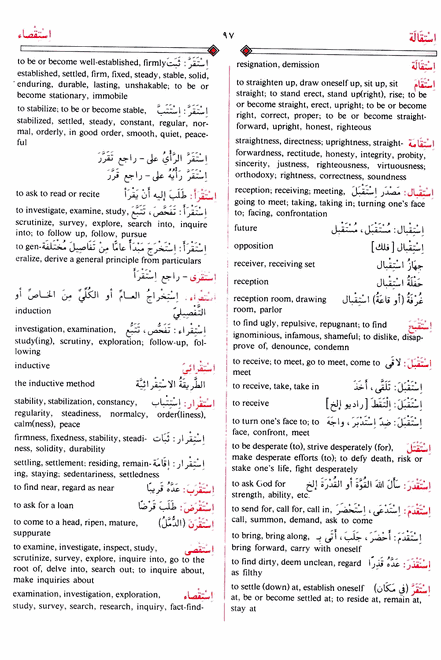 استقالة ٩٧ استقصاء
استقالة resignation, demission
اِسْتَقامَ to straighten up, draw oneself up, sit up, sit
straight; to stand erect, stand up(right), rise; to be
or become straight, erect, upright; to be or become
right, correct, proper; to be or become straight-
forward, upright, honest, righteous
اِسْتِقامَة straightness, directness; uprightness, straight-
forwardness, rectitude, honesty, integrity, probity,
sincerity, justness, righteousness, virtuousness;
orthodoxy; rightness, correctness, soundness
اِسْتِقْبال: مَصْدَر اِسْتَقْبَلَ reception; receiving; meeting,
going to meet; taking, taking in; turning one's face
to; facing, confrontation
اِسْتِقْبال: مُسْتَقْبَل، مُسْتَقْبِل future
اِسْتِقْبال [فلك] opposition
جِهازُ اسْتِقْبال receiver, receiving set
حَفْلَةُ اسْتِقْبال reception
غُرْفَةُ (أو قاعَةُ) اسْتِقْبال reception room, drawing
room, parlor
اِسْتَقْبَحَ to find ugly, repulsive, repugnant; to find
ignominious, infamous, shameful; to dislike, disap-
prove of, denounce, condemn
اِسْتَقْبَلَ: لاقَى to receive; to meet, go to meet, come to
meet
اِسْتَقْبَلَ: تَلَقَّى، أَخَذَ to receive, take, take in
اِسْتَقْبَلَ: اِلْتَقَطَ [راديو إلخ] to receive
اِسْتَقْبَلَ: ضِدّ اِسْتَدْبَرَ، واجَهَ to turn one's face to; to
face, confront, meet
اِسْتَقْتَلَ to be desperate (to), strive desperately (for),
make desperate efforts (to); to defy death, risk or
stake one's life, fight desperately
اِسْتَقْدَرَ: سَأَلَ اللهَ القُوَّةَ أو القُدْرَةَ إلخ to ask God for
strength, ability, etc.
اِسْتَقْدَمَ: اِسْتَدْعَى، اِسْتَحْضَرَ to send for, call for, call in,
call, summon, demand, ask to come
اِسْتَقْدَمَ: أَحْضَرَ، جَلَبَ، أَتَى بِـ to bring, bring along,
bring forward, carry with oneself
اِسْتَقْذَرَ: عَدَّهُ قَذِراً to find dirty, deem unclean, regard
as filthy
اِسْتَقَرَّ (في مَكان) to settle (down) at, establish oneself
at, be or become settled at; to reside at, remain at,
stay at
اِسْتَقَرَّ: ثَبَتَ to be or become well-established, firmly
established, settled, firm, fixed, steady, stable, solid,
enduring, durable, lasting, unshakable; to be or
become stationary, immobile
اِسْتَقَرَّ: اِسْتَتَبَّ to stabilize; to be or become stable,
stabilized, settled, steady, constant, regular, nor-
mal, orderly, in good order, smooth, quiet, peace-
ful
اِسْتَقَرَّ الرَّأْيُ على - راجع تَقَرَّرَ
اِسْتَقَرَّ رَأْيُهُ على - راجع قَرَّرَ
اِسْتَقْرَأَ: طَلَبَ إلَيهِ أنْ يَقْرَأَ to ask to read or recite
اِسْتَقْرَأَ: تَفَحَّصَ، تَتَبَّعَ to investigate, examine, study,
scrutinize, survey, explore, search into, inquire
into; to follow up, follow, pursue
اِسْتَقْرَأَ: اِسْتَخْرَجَ مَبْدَأً عامًّا مِنْ تَفاصِيلَ مُخْتَلِفَة to gen-
eralize, derive a general principle from particulars
اِسْتَقْرَى - راجع اِسْتَقْرَأَ
اِسْتِقْراء: اِسْتِخْراجُ العامِّ أو الكُلِّيّ مِنَ الخاصِّ أو
التَّفْصِيلِيّ
induction
اِسْتِقْراء: تَفَحُّص، تَتَبُّع investigation, examination,
study(ing), scrutiny, exploration; follow-up, fol-
lowing
اِسْتِقْرائِيّ inductive
الطَّرِيقَةُ الاسْتِقْرائِيَّة the inductive method
اِسْتِقْرار: اِسْتِتْباب stability, stabilization, constancy,
regularity, steadiness, normalcy, order(liness),
calm(ness), peace
اِسْتِقْرار: ثَبات firmness, fixedness, stability, steadi-
ness, solidity, durability
اِسْتِقْرار: إقامَة settling, settlement; residing, remain-
ing, staying; sedentariness, settledness
اِسْتَقْرَبَ: عَدَّهُ قَرِيباً to find near, regard as near
اِسْتَقْرَضَ: طَلَبَ قَرْضاً to ask for a loan
اِسْتَقْرَنَ (الدُّمَّلُ) to come to a head, ripen, mature,
suppurate
اِسْتَقْصَى to examine, investigate, inspect, study,
scrutinize, survey, explore, inquire into, go to the
root of, delve into, search out; to inquire about,
make inquiries about
اِسْتِقْصاء examination, investigation, exploration,
study, survey, search, research, inquiry, fact-find-